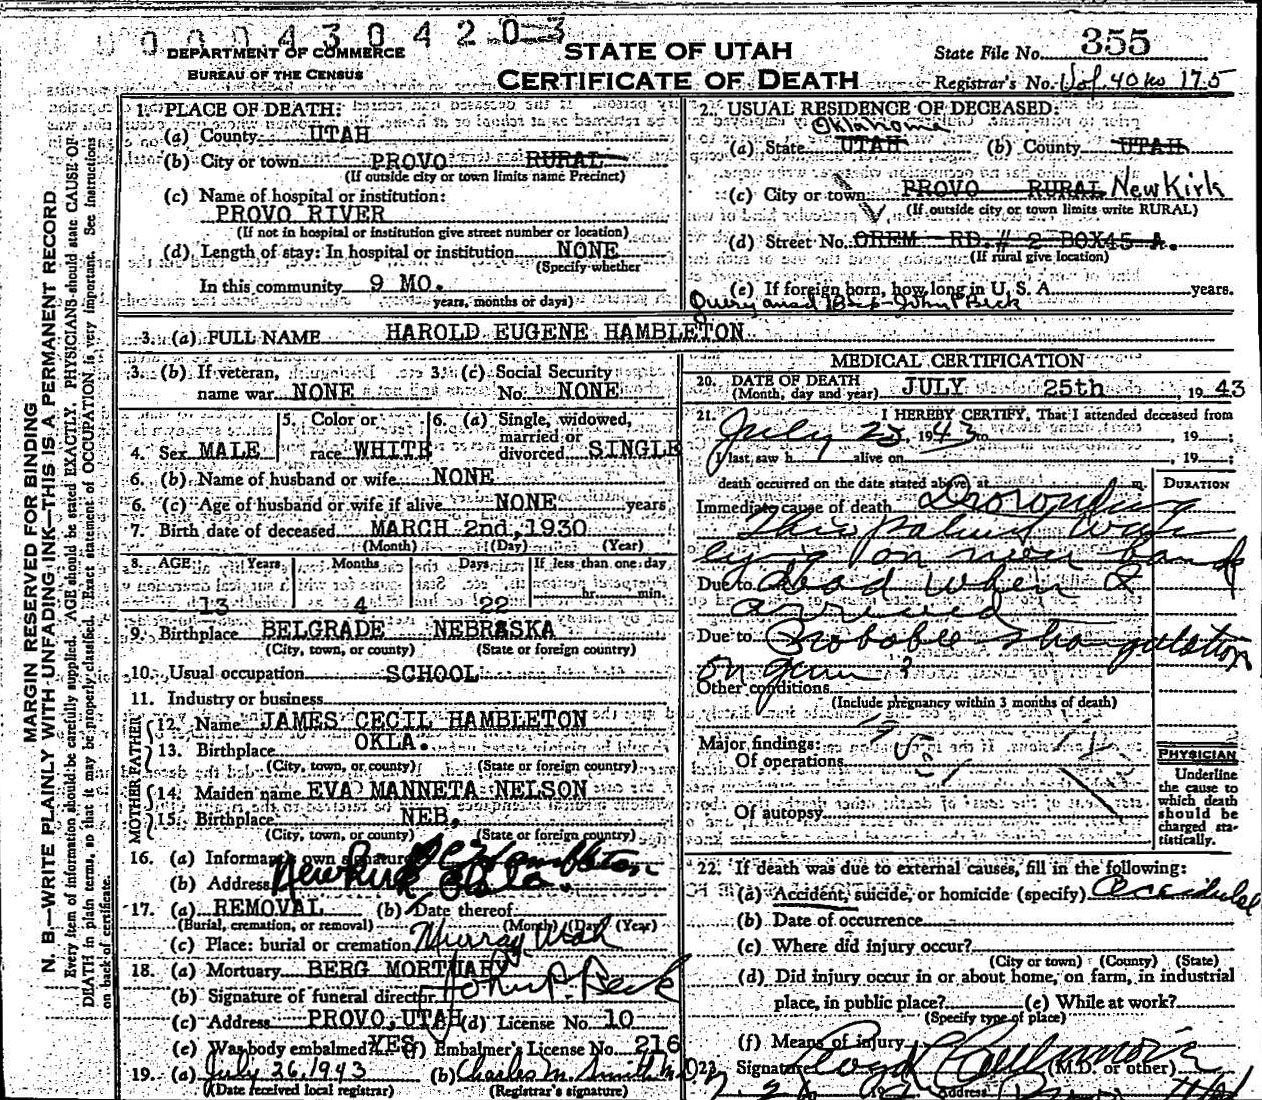 0004304203
DEPARTMENT OF COMMERCE
BUREAU OF THE CENSUS
STATE OF UTAH
CERTIFICATE OF DEATH
State File No. 355
Registrar's No. Vol. 40 No 175
MARGIN RESERVED FOR BINDING
N. B.—WRITE PLAINLY WITH UNFADING INK—THIS IS A PERMANENT RECORD
Every item of information should be carefully supplied. AGE should be stated EXACTLY. PHYSICIANS should state CAUSE OF
DEATH in plain terms, so that it may be properly classified. Exact statement of OCCUPATION is very important. See instructions
on back of certificate.
1. PLACE OF DEATH:
(a) County UTAH
(b) City or town PROVO RURAL
(If outside city or town limits name Precinct)
(c) Name of hospital or institution:
PROVO RIVER
(If not in hospital or institution give street number or location)
(d) Length of stay: In hospital or institution NONE
(Specify whether
In this community 9 MO.
years, months or days)
2. USUAL RESIDENCE OF DECEASED:
Oklahoma
(a) State UTAH (b) County UTAH
(c) City or town PROVO RURAL NewKirk
(If outside city or town limits write RURAL)
(d) Street No. OREM RD. # 2 BOX 45 A.
(If rural give location)
(e) If foreign born, how long in U. S. A. years.
Query ansd Beck-John P Beck
3. (a) FULL NAME HAROLD EUGENE HAMBLETON
3. (b) If veteran, name war NONE 3. (c) Social Security No. NONE
4. Sex MALE 5. Color or race WHITE 6. (a) Single, widowed, married or divorced SINGLE
6. (b) Name of husband or wife NONE
6. (c) Age of husband or wife if alive NONE years
7. Birth date of deceased MARCH 2nd, 1930
(Month) (Day) (Year)
8. AGE Years Months Days If less than one day
hr. min.
13 4 22
9. Birthplace BELGRADE NEBRASKA
(City, town, or county) (State or foreign country)
10. Usual occupation SCHOOL
11. Industry or business
FATHER
12. Name JAMES CECIL HAMBLETON
13. Birthplace OKLA.
(City, town, or county) (State or foreign country)
MOTHER
14. Maiden name EVA MANNETA NELSON
15. Birthplace NEB.
(City, town, or county) (State or foreign country)
16. (a) Informant's own signature J C Hambleton
(b) Address Newkirk Okla.
17. (a) REMOVAL (b) Date thereof
(Burial, cremation, or removal) (Month) (Day) (Year)
(c) Place: burial or cremation Murray Utah
18. (a) Mortuary BERG MORTUARY
(b) Signature of funeral director John P. Beck
(c) Address PROVO, UTAH (d) License No. 10
(e) Was body embalmed YES (f) Embalmer's License No. 216
19. (a) July 26, 1943 (b) Charles M. Smith M.D.
(Date received local registrar) (Registrar's signature)
MEDICAL CERTIFICATION
20. DATE OF DEATH JULY 25th, 1943
(Month, day and year)
21. I HEREBY CERTIFY, That I attended deceased from
July 25, 1943 to , 19
I last saw h alive on , 19
death occurred on the date stated above, at m.
DURATION
Immediate cause of death Drowning
This patient was
lying on river bank
Due to dead when I
arrived
Due to Probable strangulation
on gum ?
Other conditions
(Include pregnancy within 3 months of death)
Major findings:
Of operations
Of autopsy
PHYSICIAN
Underline the cause to which death should be charged statistically.
22. If death was due to external causes, fill in the following:
(a) Accident, suicide, or homicide (specify) Accidental
(b) Date of occurrence
(c) Where did injury occur?
(City or town) (County) (State)
(d) Did injury occur in or about home, on farm, in industrial
place, in public place? (e) While at work?
(Specify type of place)
(f) Means of injury
23. Signature Lloyd
(M.D. or other)
Address